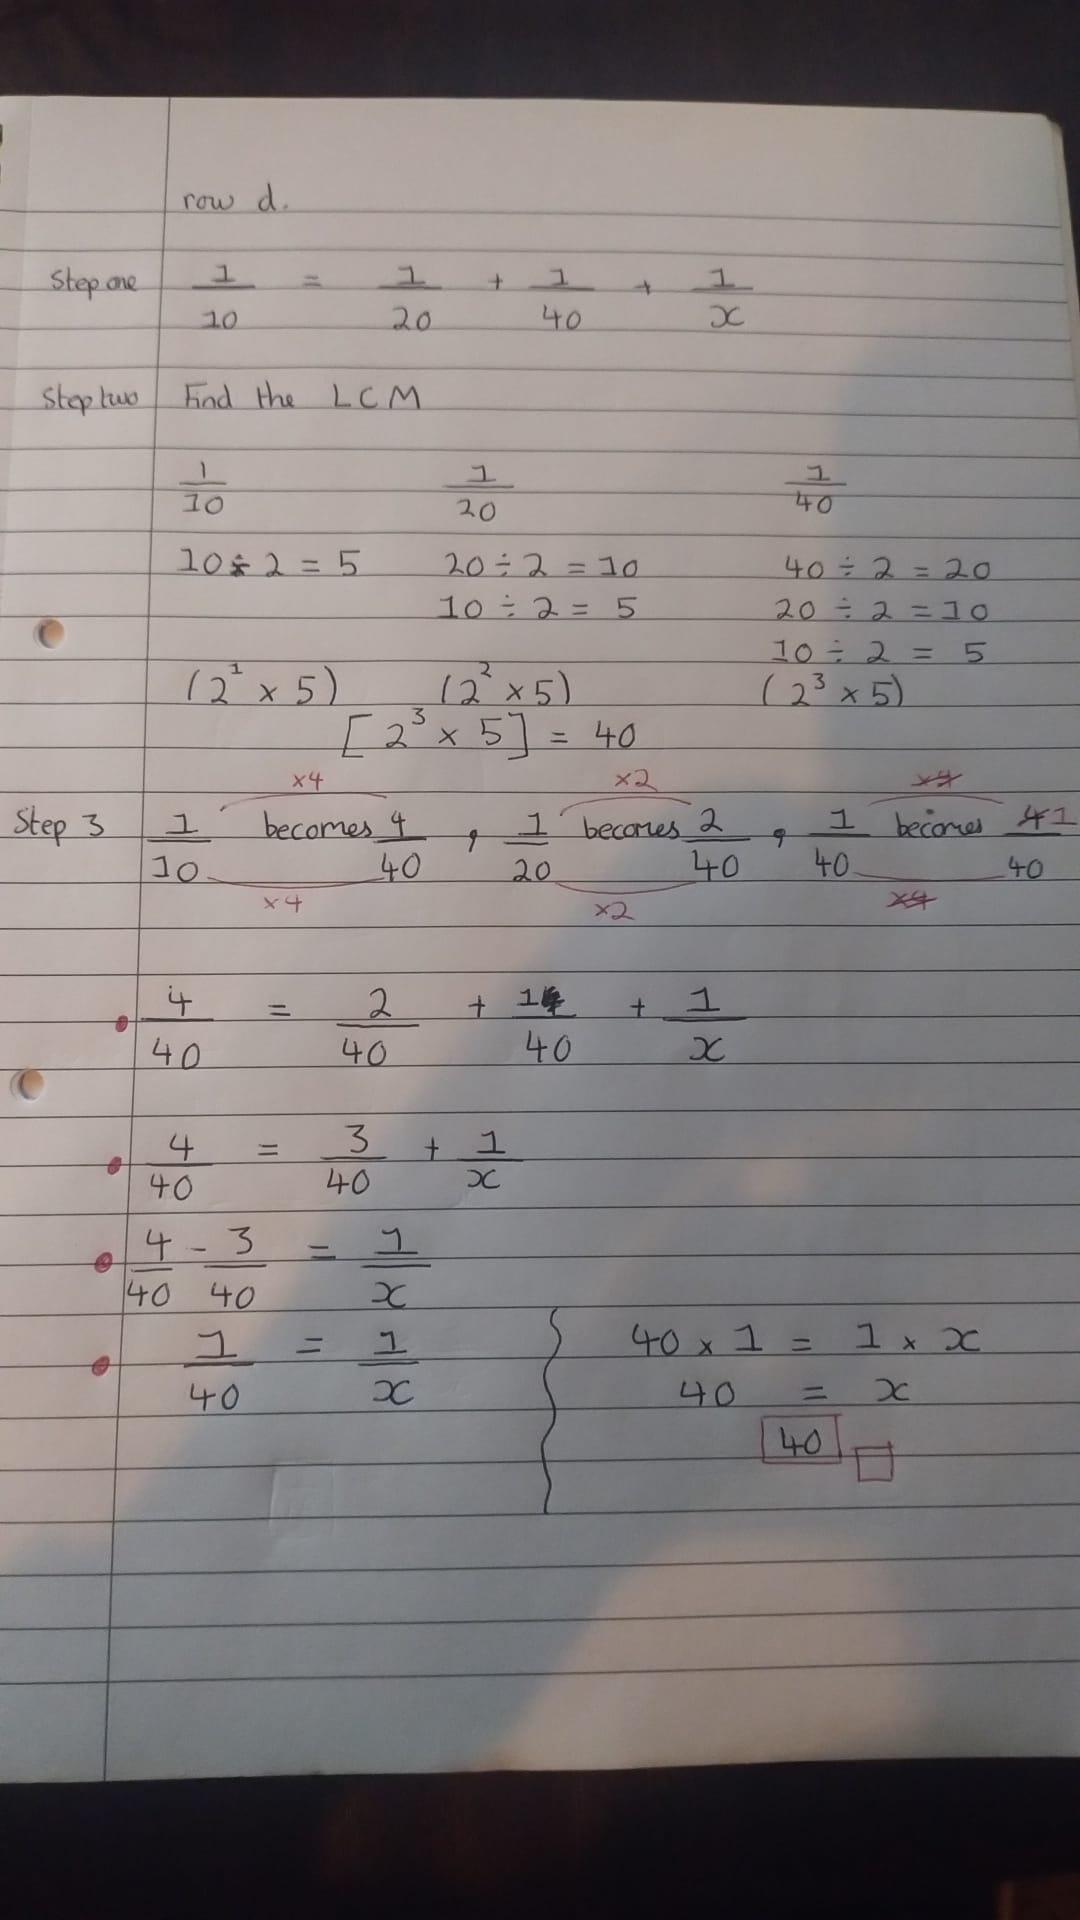 row d.
Step one 1/10 = 1/20 + 1/40 + 1/x
Step two Find the LCM
1/10 1/20 1/40
10 ÷ 2 = 5 20 ÷ 2 = 10 40 ÷ 2 = 20
10 ÷ 2 = 5 20 ÷ 2 = 10
10 ÷ 2 = 5
(2¹ x 5) (2² x 5) (2³ x 5)
[2³ x 5] = 40
x4 x2 x4
Step 3 1/10 becomes 4/40 , 1/20 becomes 2/40 , 1/40 becomes 41/40
x4 x2 x4
• 4/40 = 2/40 + 1/40 + 1/x
• 4/40 = 3/40 + 1/x
• 4/40 - 3/40 = 1/x
• 1/40 = 1/x
40 x 1 = 1 x x
40 = x
40